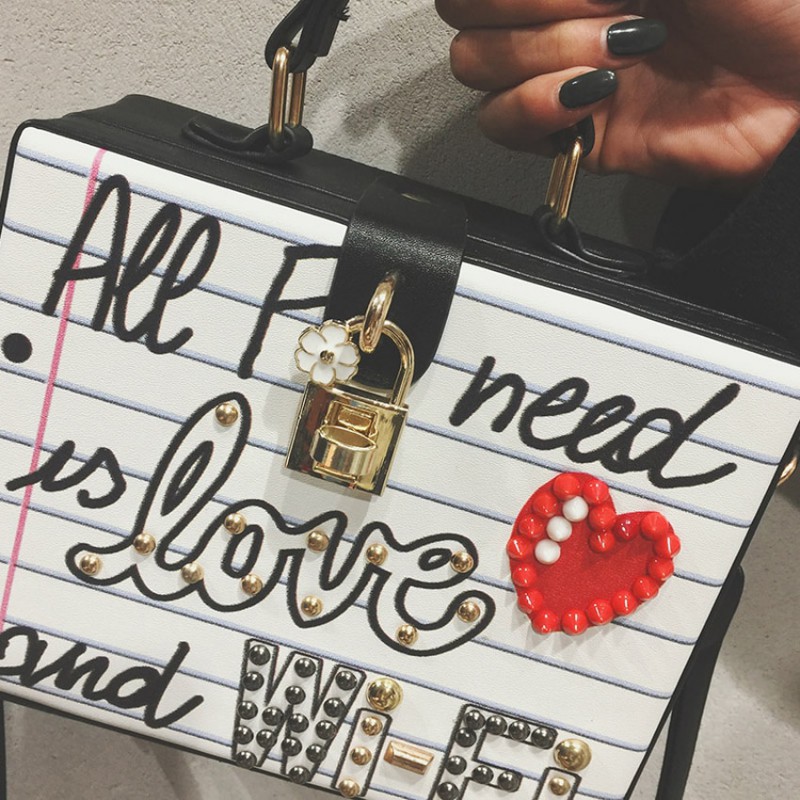 All
need
is love
and Wi-Fi